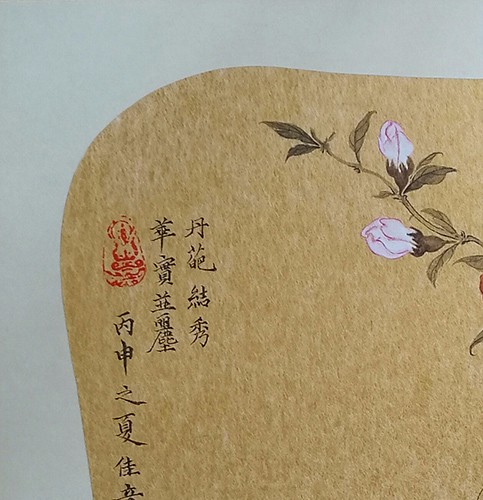 丹葩結秀
華實並麗
丙申之夏佳